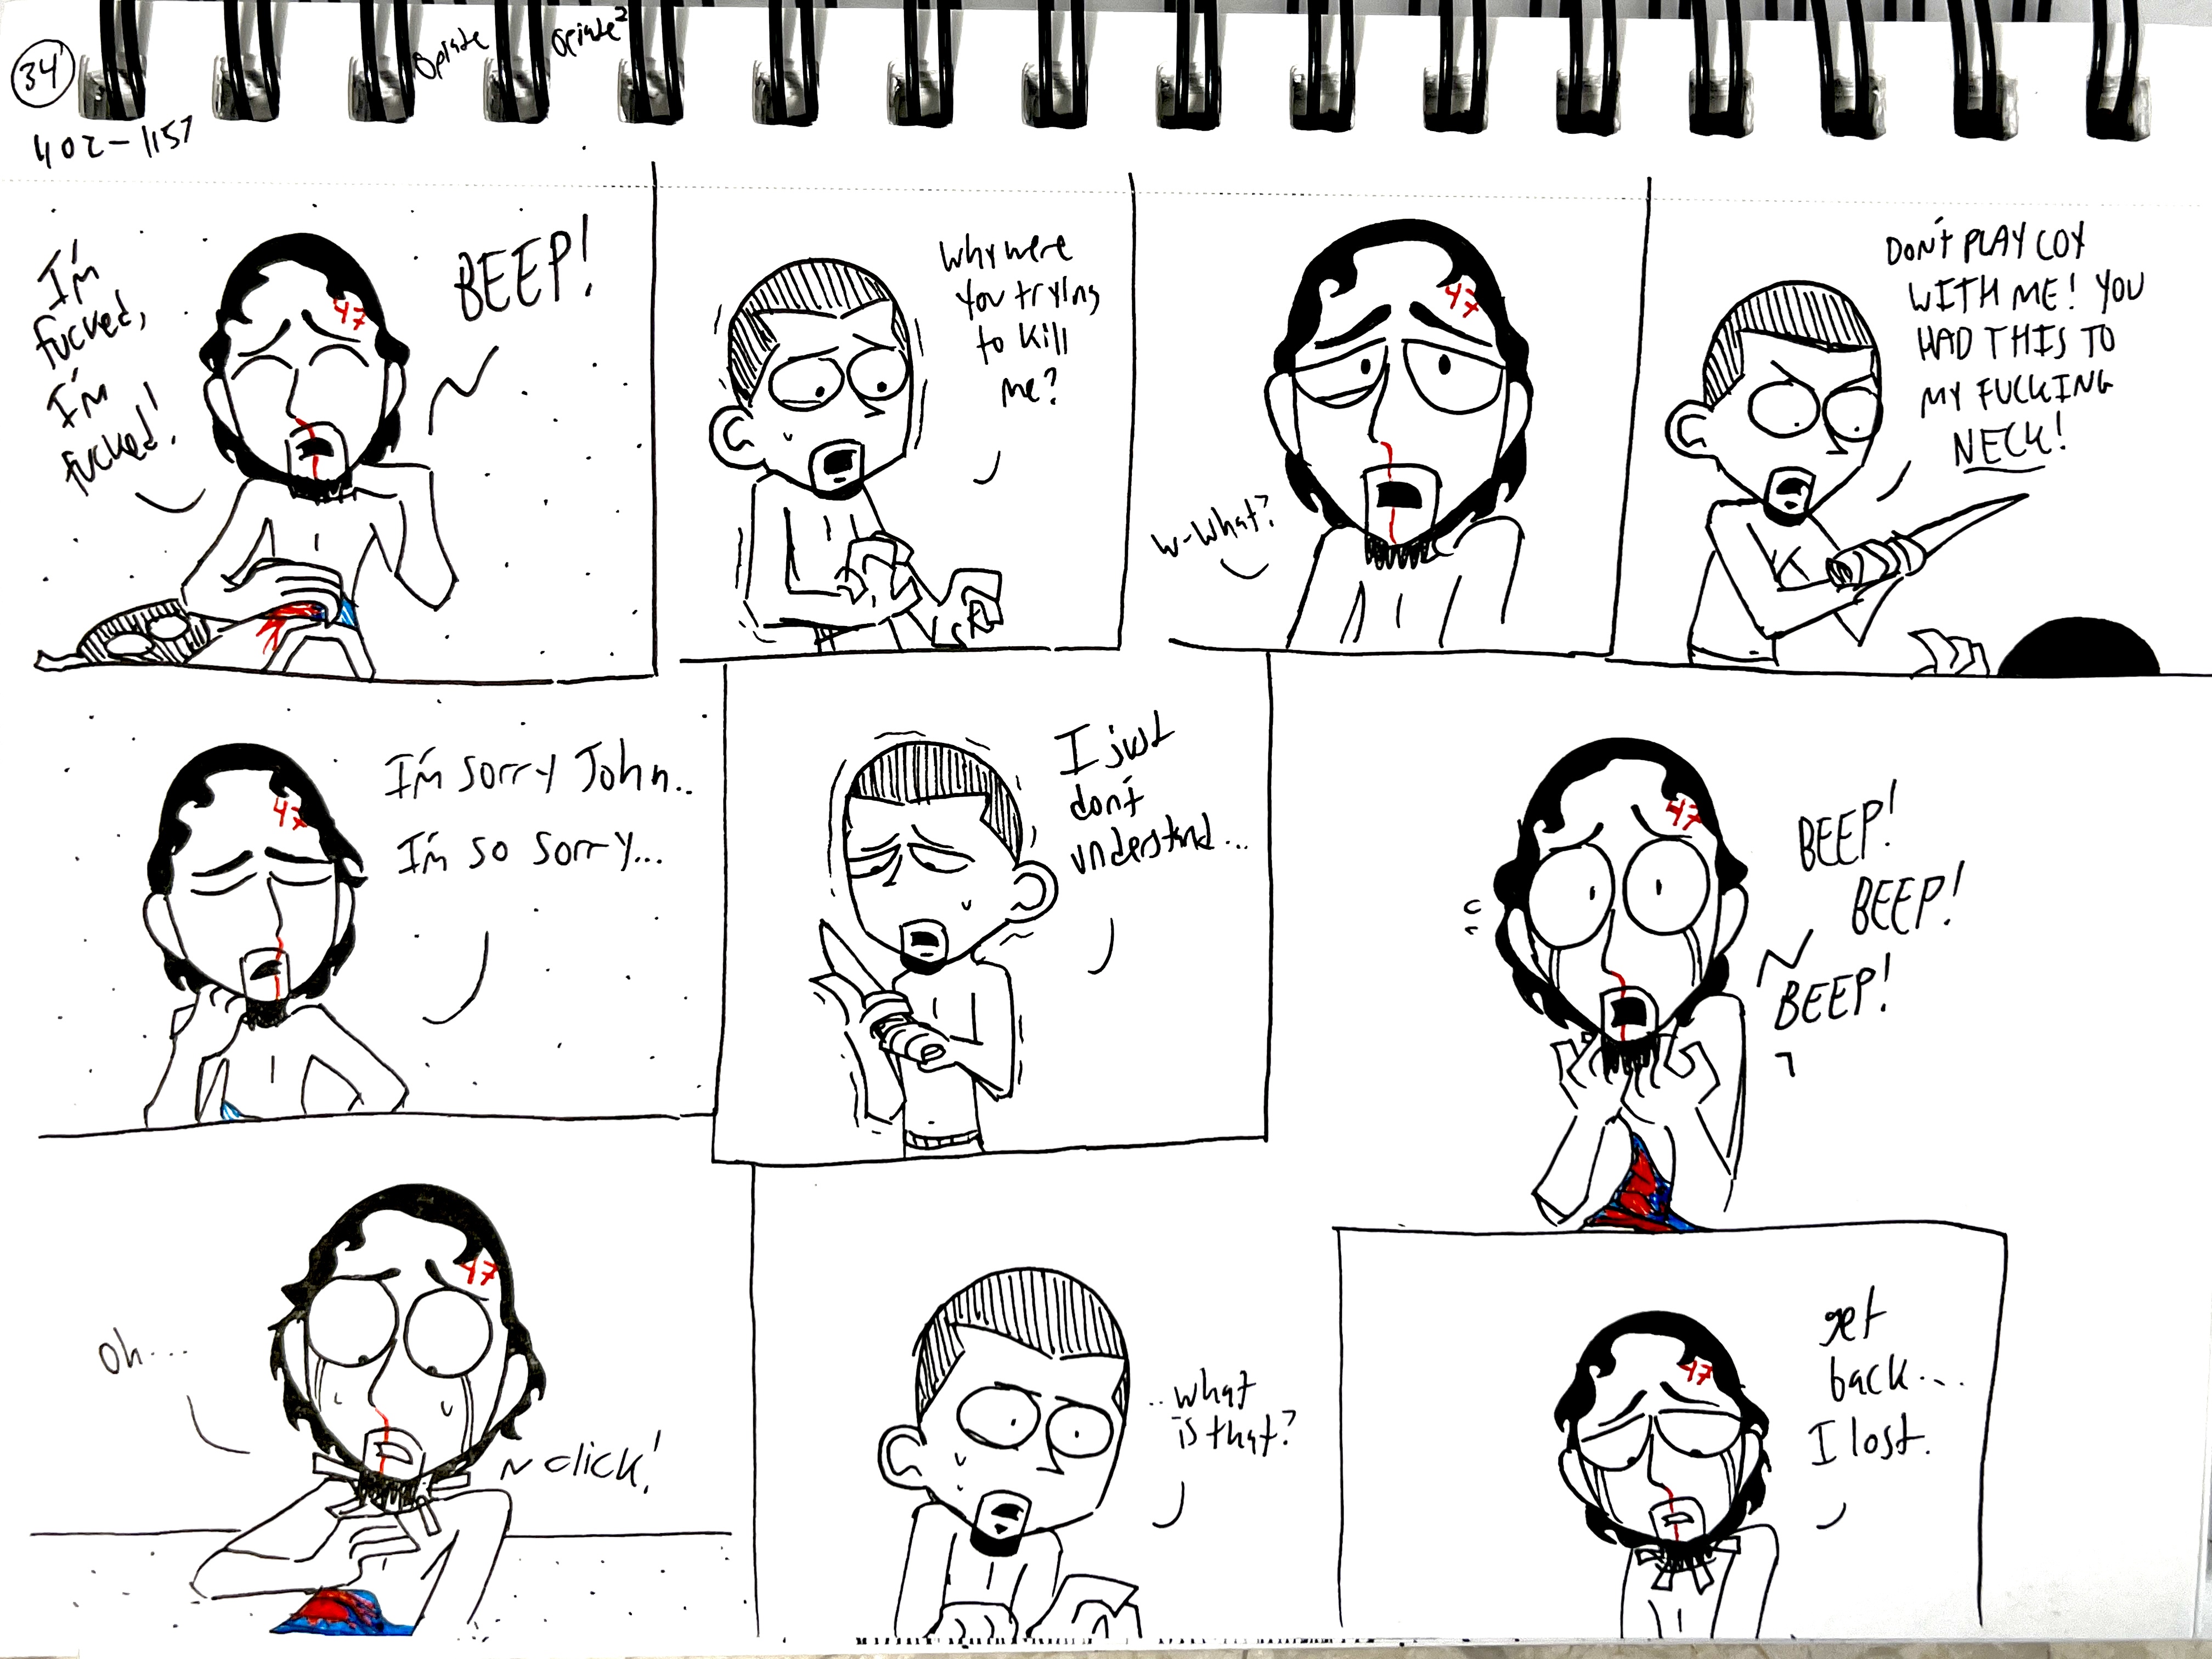 34
Opiate
Opiate²
402-1157
I'm
fucked,
I'm
fucked!
47
BEEP!
Why were
you trying
to kill
me?
47
W-What?
DON'T PLAY COY
WITH ME! YOU
HAD THIS TO
MY FUCKING
NECK!
47
I'm sorry John..
I'm so sorry...
I just
don't
understand...
47
BEEP!
BEEP!
BEEP!
47
Oh...
click!
..what
is that?
47
get
back...
I lost.